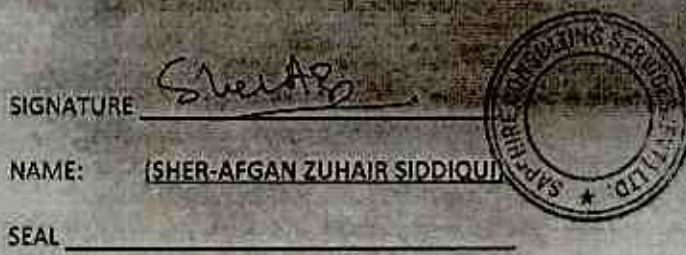 SIGNATURE SherAfg
NAME: (SHER-AFGAN ZUHAIR SIDDIQUI)
SEAL
SAPPHIRE CONSULTING SERVICES (PVT) LTD.